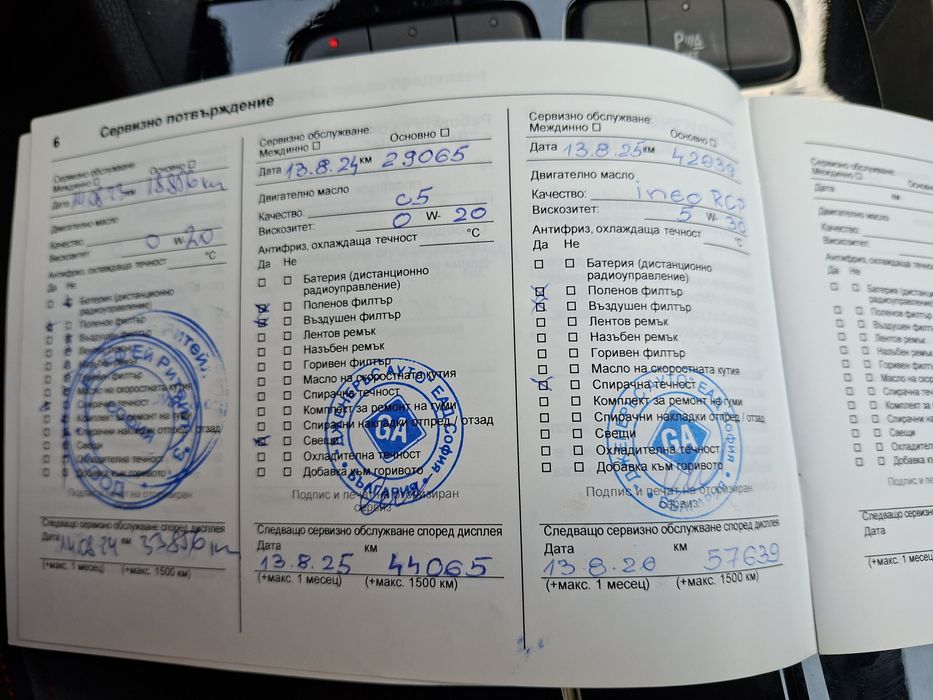 6
Сервизно потвърждение
Сервизно обслужване
Междинно ☐ Основно ☐
Дата 14.08.23 18856 km
Двигателно масло
Качество:
Вискозитет: 0 W- 20
Антифриз, охлаждаща течност °C
Да Не
Батерия (дистанционно
радиоуправление)
Поленов филтър
Въздушен филтър
Горивен филтър
Масло на скоростната кутия
Спирачна течност
Комплект за ремонт на гуми
Спирачни накладки отпред / отзад
Свещи
Охладителна течност
Добавка към горивото
Подпис и печат на оторизиран
Следващо сервизно обслужване според дисплея
Дата км
14.08.24 33856 km
(+макс. 1 месец) (+макс. 1500 км)
Сервизно обслужване:
Междинно ☐ Основно ☐
Дата 13.8.24 км 29065
Двигателно масло
Качество: c5
Вискозитет: 0 W- 20
Антифриз, охлаждаща течност °C
Да Не
Батерия (дистанционно
радиоуправление)
Поленов филтър
Въздушен филтър
Лентов ремък
Назъбен ремък
Горивен филтър
Масло на скоростната кутия
Спирачна течност
Комплект за ремонт на гуми
Спирачни накладки отпред / отзад
Свещи
Охладителна течност
Добавка към горивото
Подпис и печат на оторизиран
сервиз
GA
ДЖЕНЕРЪС АУТО ЕАД София
• БЪЛГАРИЯ •
Следващо сервизно обслужване според дисплея
Дата км
13.8.25 44065
(+макс. 1 месец) (+макс. 1500 км)
Сервизно обслужване:
Междинно ☐ Основно ☐
Дата 13.8.25 км 42639
Двигателно масло
Качество: ineo RCP
Вискозитет: 5 W- 30
Антифриз, охлаждаща течност °C
Да Не
Батерия (дистанционно
радиоуправление)
Поленов филтър
Въздушен филтър
Лентов ремък
Назъбен ремък
Горивен филтър
Масло на скоростната кутия
Спирачна течност
Комплект за ремонт на гуми
Спирачни накладки отпред / отзад
Свещи
Охладителна течност
Добавка към горивото
Подпис и печат на оторизиран
сервиз
GA
Следващо сервизно обслужване според дисплея
Дата км
13.8.26 57639
(+макс. 1 месец) (+макс. 1500 км)
Сервизно обслужване:
Междинно ☐
Дата км
Двигателно масло
Качество:
Вискозитет:
Антифриз, охлаждаща
Да Не
Батерия
Поленов филтър
Въздушен
Лентов ремък
Назъбен ремък
Горивен филтър
Масло на
Спирачна
Комплект за
Спирачни
Свещи
Охладителна
Добавка към
Подпис и
Следващо сервизно
Дата
(+макс. 1 месец)